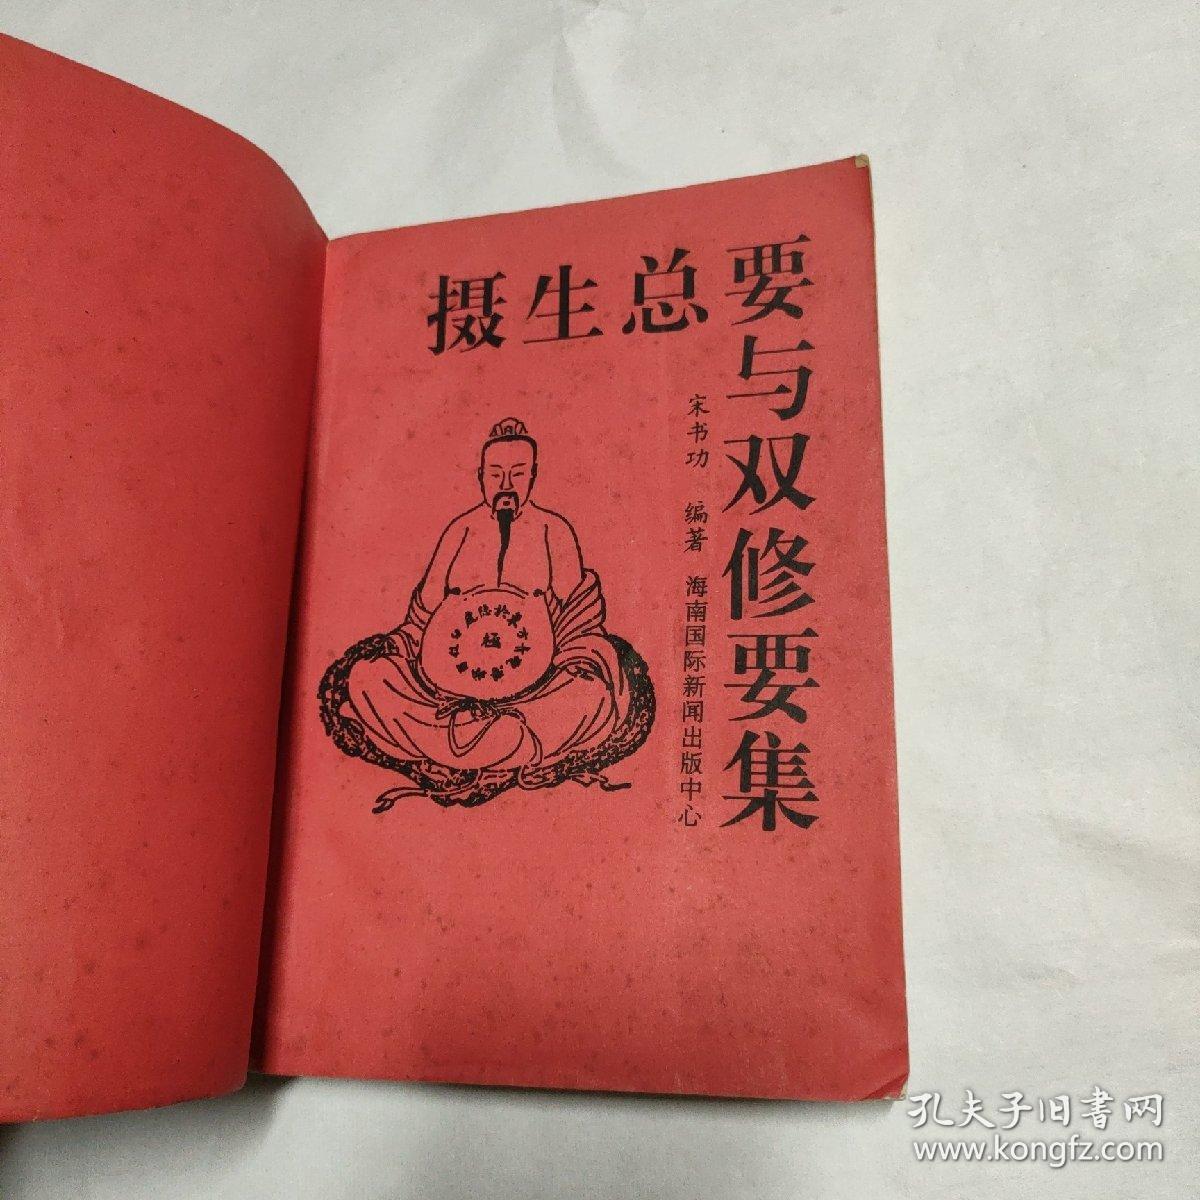 摄生总要与双修要集
宋书功 编著
海南国际新闻出版中心
极
孔夫子旧书网
www.kongfz.com